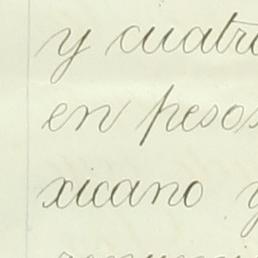 y cuatro
en pesos
xicano y